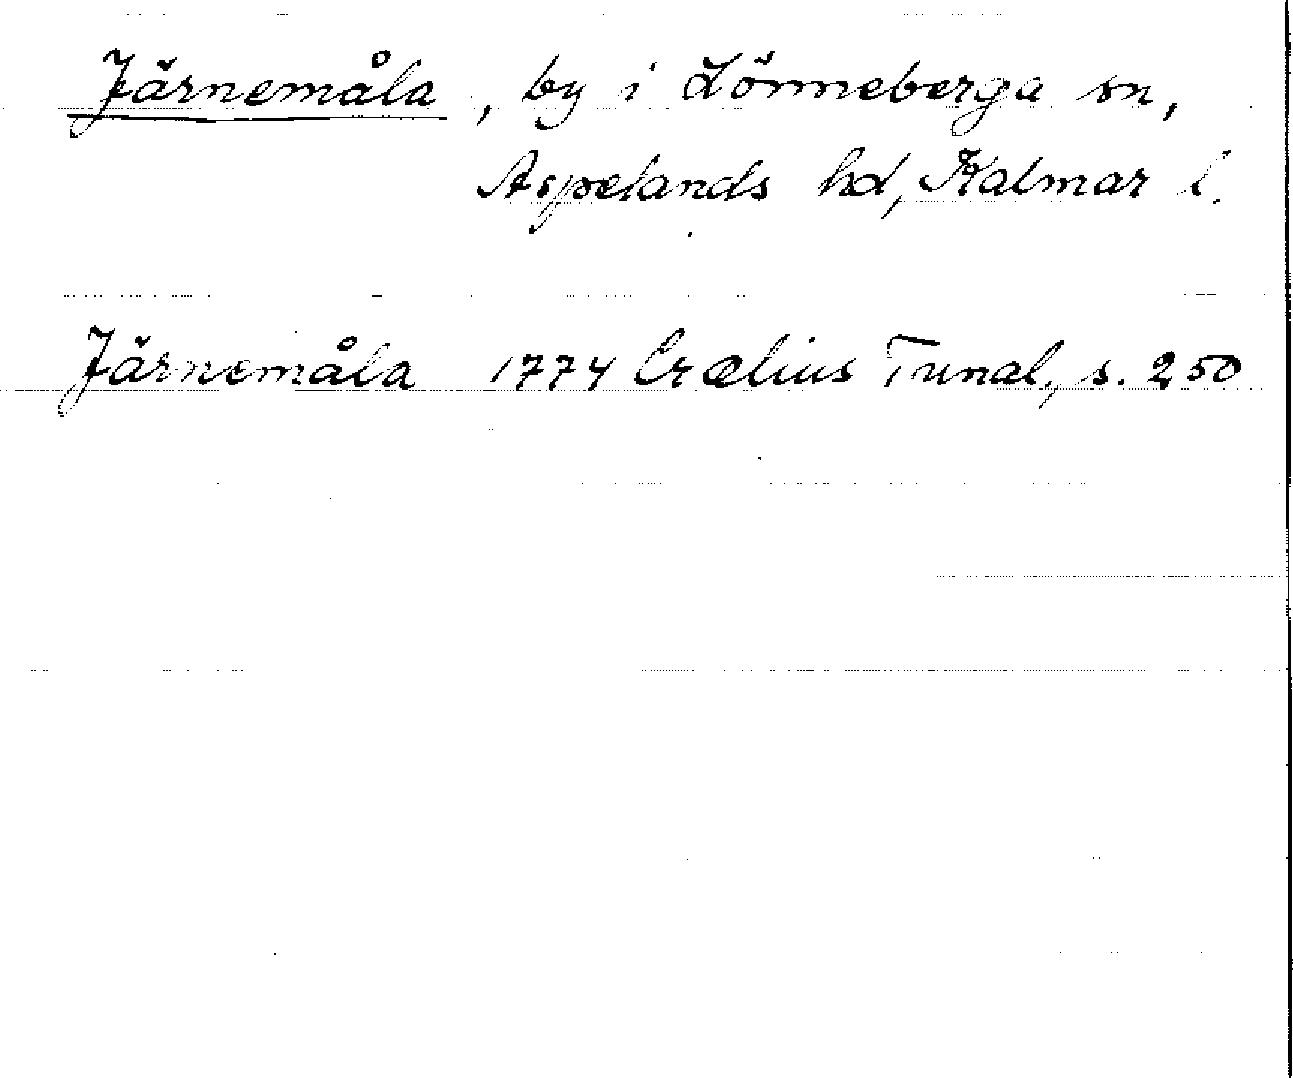 Järnemåla, by i Lönneberga sn,
Aspelands hd, Kalmar l.
Järnemåla 1774 Crælius Tunal, s. 250